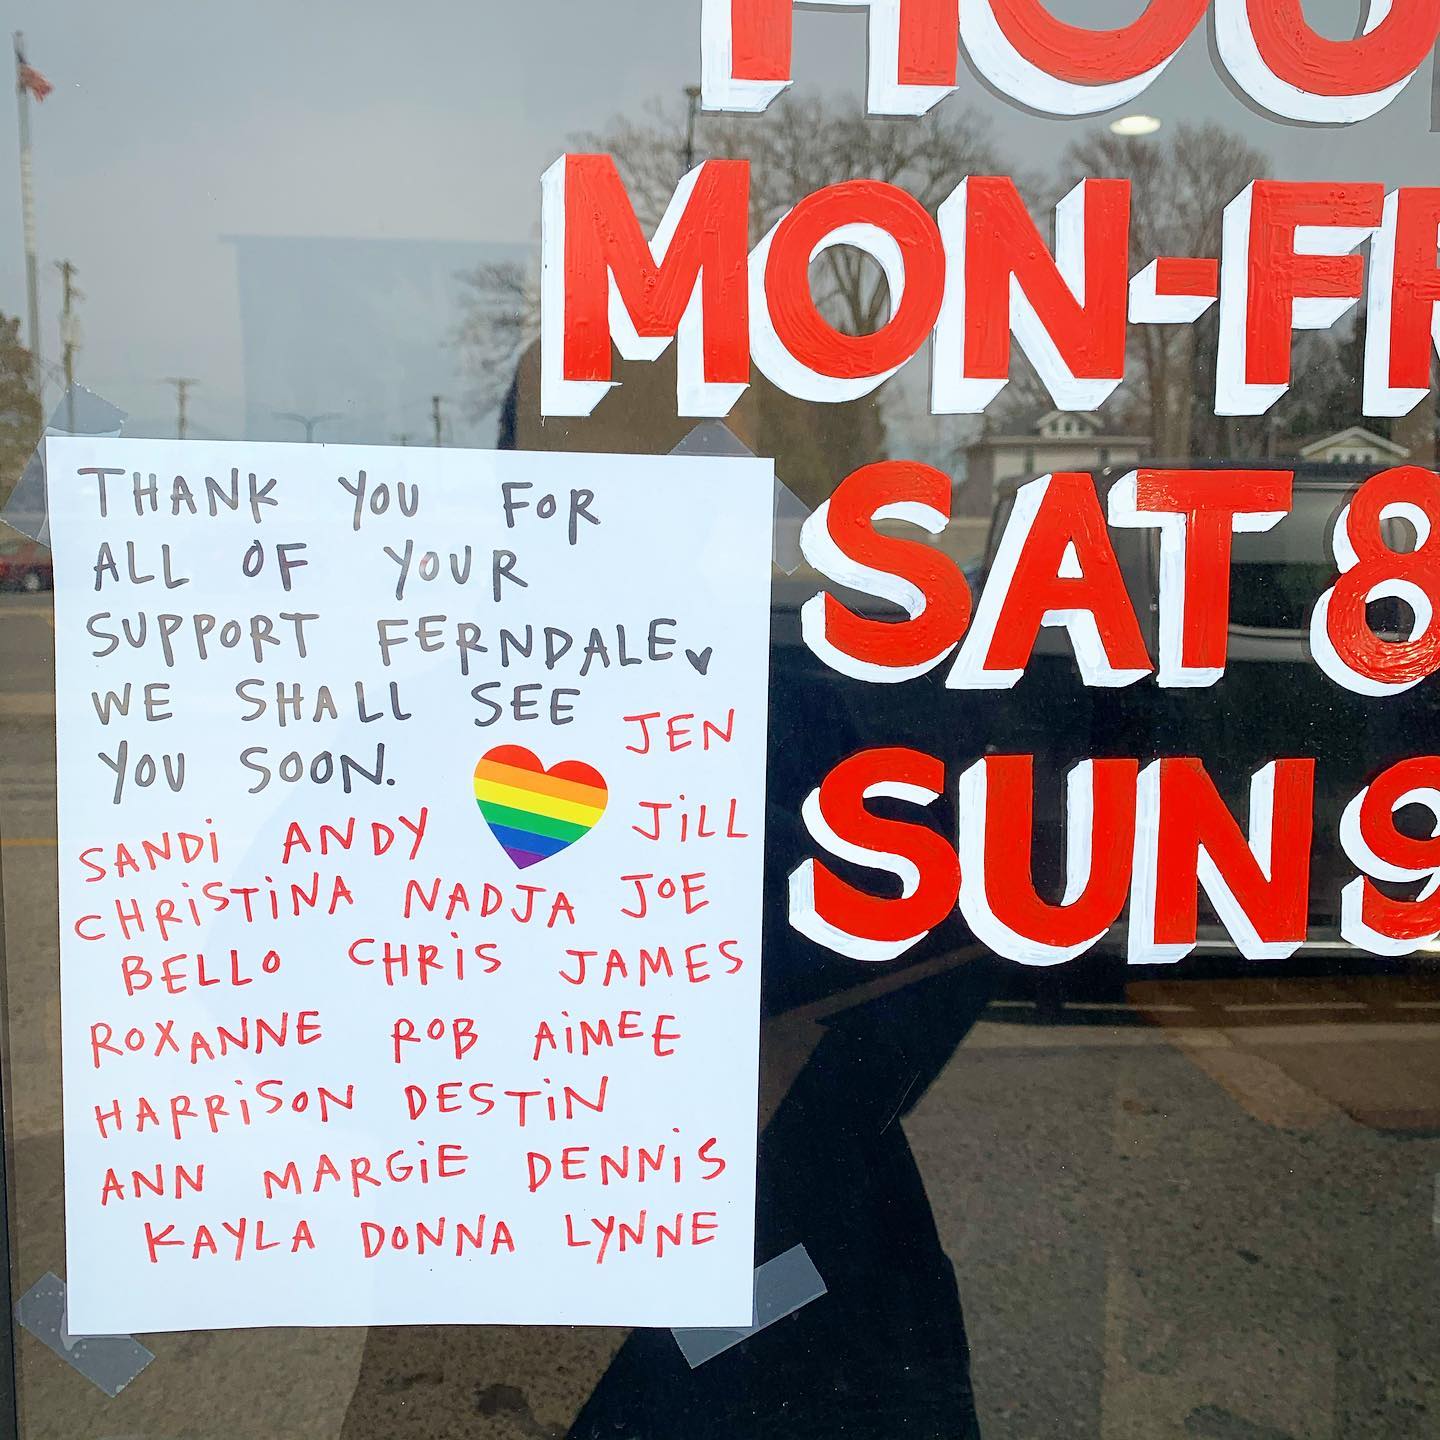 HOU
MON-FR
SAT 8
SUN 9
THANK YOU FOR
ALL OF YOUR
SUPPORT FERNDALE
WE SHALL SEE
YOU SOON.
JEN
SANDi ANDY JiLL
CHRiSTiNA NADJA JOE
BELLO CHRiS JAMES
ROXANNE ROB AiMEE
HARRiSON DESTiN
ANN MARGiE DENNiS
KAYLA DONNA LYNNE